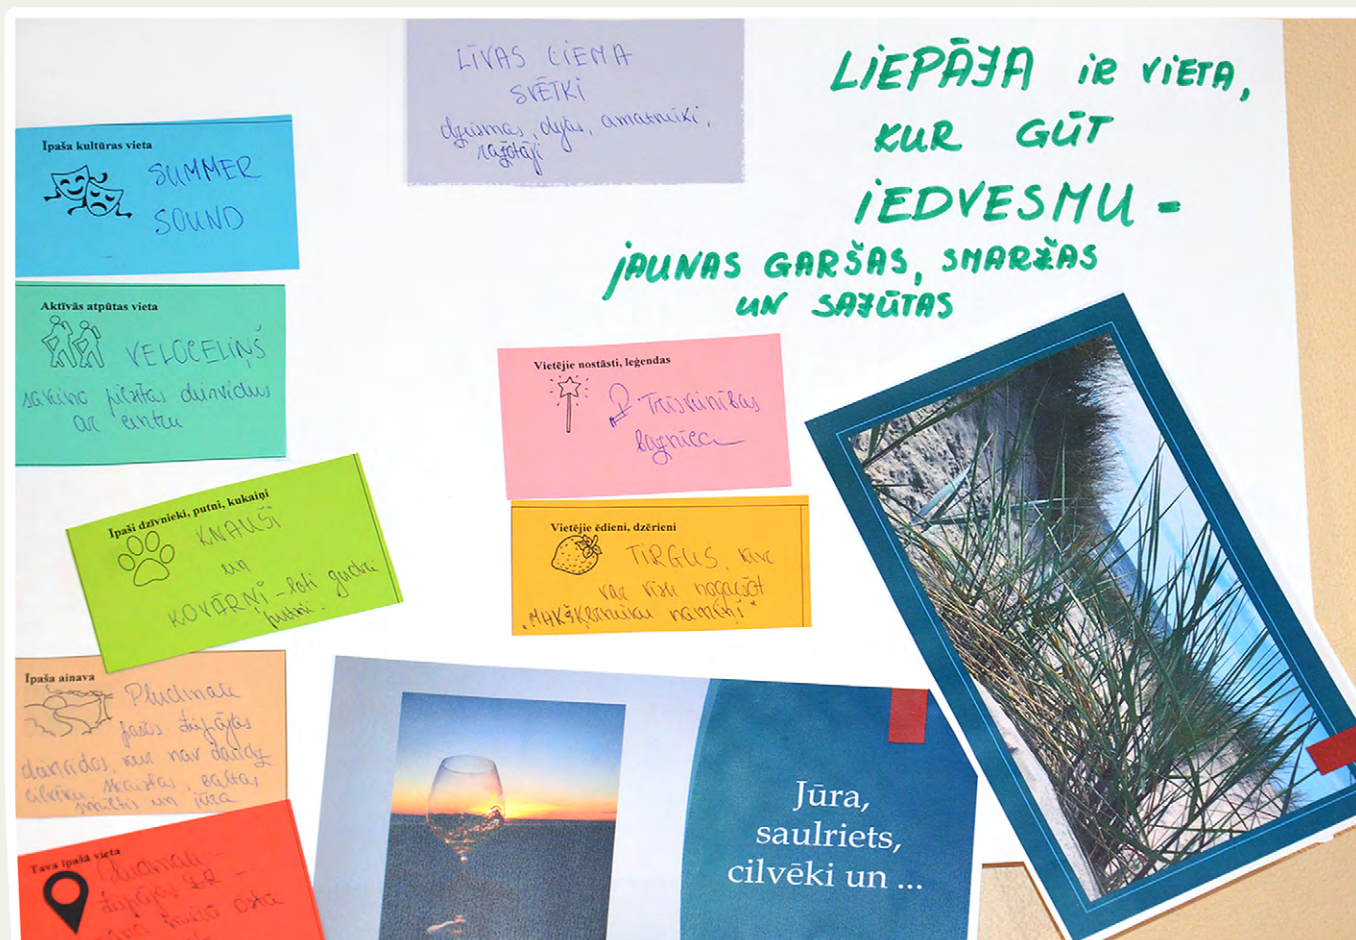 LĪVAS CIEMA
SVĒTKI
dziesmas, dejas, amatnieki,
ražotāji
LIEPĀJA IR VIETA,
KUR GŪT
IEDVESMU -
JAUNAS GARŠAS, SMARŽAS
UN SAJŪTAS
Īpaša kultūras vieta
SUMMER
SOUND
Aktīvās atpūtas vieta
VELOCELIŅŠ
savieno pilsētas dienvidus
ar centru
Vietējie nostāsti, leģendas
Trīsvienības
baznīca
Īpaši dzīvnieki, putni, kukaiņi
KNAUŠI
un
KOVĀRŅI - ļoti gudri
putni.
Vietējie ēdieni, dzērieni
TIRGUS, kur
var visu nogaršot
"MAKŠĶERNIEKU NAMIŅĪ"
Īpaša ainava
Pludmale
Liepājas
dienvidos, kur nav daudz
cilvēku, skaistas, baltas
smiltis un jūra
Tava īpašā vieta
Pludmale -
Liepājas
osta
Jūra,
saulriets,
cilvēki un ...